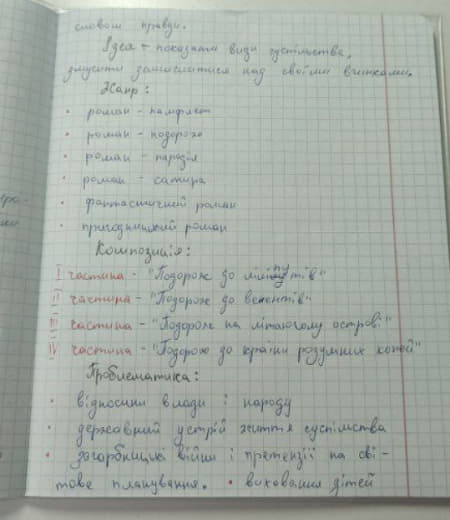 словом правди.
Ідея - показати види суспільства,
змусити замислитися над своїми вчинками.
Жанр:
• роман - памфлет
• роман - подорож
• роман - пародія
• роман - сатира
• фантастичний роман
• пригодницький роман
Композиція:
I частина - "Подорож до ліліпутів"
II частина - "Подорож до велетнів"
III частина - "Подорож на літаючому острові"
IV частина - "Подорож до країни розумних коней"
Проблематика:
• відносини влади і народу
• державний устрій життя суспільства
• загарбницькі війни і претензії на сві-
тове планування. • виховання дітей